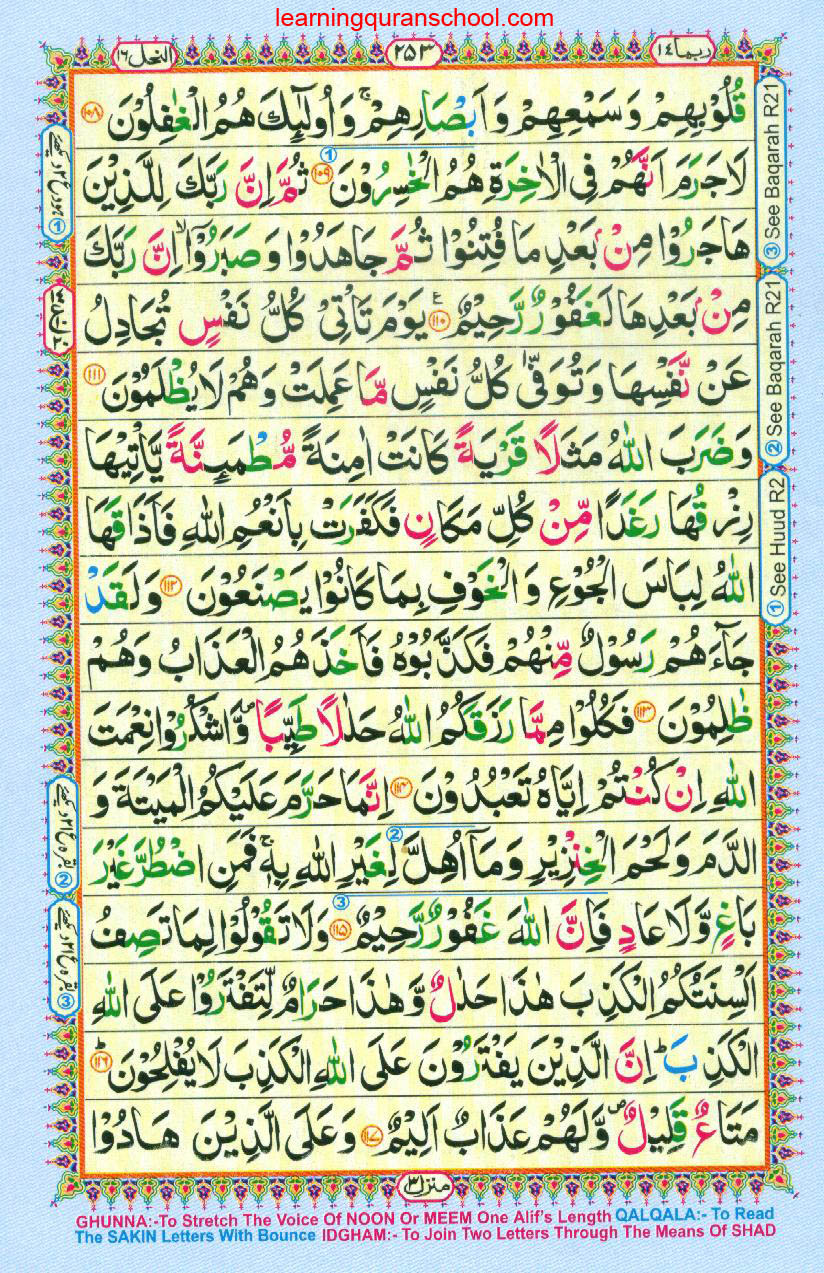 learningquranschool.com
النحل ١٦
٢٥٣
ربما ١٤
قُلُوْبِهِمْ وَسَمْعِهِمْ وَاَبْصَارِهِمْ ۚ وَاُولٰٓئِكَ هُمُ الْغٰفِلُوْنَ ١٠٨
لَا جَرَمَ اَنَّهُمْ فِى الْاٰخِرَةِ هُمُ الْخٰسِرُوْنَ ١٠٩ ثُمَّ اِنَّ رَبَّكَ لِلَّذِيْنَ
هَاجَرُوْا مِنْۢ بَعْدِ مَا فُتِنُوْا ثُمَّ جَاهَدُوْا وَصَبَرُوْٓا ۙ اِنَّ رَبَّكَ
مِنْۢ بَعْدِهَا لَغَفُوْرٌ رَّحِيْمٌ ١١٠ ع يَوْمَ تَاْتِىْ كُلُّ نَفْسٍ تُجَادِلُ
عَنْ نَّفْسِهَا وَتُوَفّٰى كُلُّ نَفْسٍ مَّا عَمِلَتْ وَهُمْ لَا يُظْلَمُوْنَ ١١١
وَضَرَبَ اللّٰهُ مَثَلًا قَرْيَةً كَانَتْ اٰمِنَةً مُّطْمَىِٕنَّةً يَّاْتِيْهَا
رِزْقُهَا رَغَدًا مِّنْ كُلِّ مَكَانٍ فَكَفَرَتْ بِاَنْعُمِ اللّٰهِ فَاَذَاقَهَا
اللّٰهُ لِبَاسَ الْجُوْعِ وَالْخَوْفِ بِمَا كَانُوْا يَصْنَعُوْنَ ١١٢ وَلَقَدْ
جَآءَهُمْ رَسُوْلٌ مِّنْهُمْ فَكَذَّبُوْهُ فَاَخَذَهُمُ الْعَذَابُ وَهُمْ
ظٰلِمُوْنَ ١١٣ فَكُلُوْا مِمَّا رَزَقَكُمُ اللّٰهُ حَلٰلًا طَيِّبًا ۠ وَّاشْكُرُوْا نِعْمَتَ
اللّٰهِ اِنْ كُنْتُمْ اِيَّاهُ تَعْبُدُوْنَ ١١٤ اِنَّمَا حَرَّمَ عَلَيْكُمُ الْمَيْتَةَ وَ
الدَّمَ وَلَحْمَ الْخِنْزِيْرِ وَمَآ اُهِلَّ لِغَيْرِ اللّٰهِ بِهٖ ۚ فَمَنِ اضْطُرَّ غَيْرَ
بَاغٍ وَّلَا عَادٍ فَاِنَّ اللّٰهَ غَفُوْرٌ رَّحِيْمٌ ١١٥ وَلَا تَقُوْلُوْا لِمَا تَصِفُ
اَلْسِنَتُكُمُ الْكَذِبَ هٰذَا حَلٰلٌ وَّهٰذَا حَرَامٌ لِّتَفْتَرُوْا عَلَى اللّٰهِ
الْكَذِبَ ؕ اِنَّ الَّذِيْنَ يَفْتَرُوْنَ عَلَى اللّٰهِ الْكَذِبَ لَا يُفْلِحُوْنَ ؕ ١١٦
مَتَاعٌ قَلِيْلٌ ۪ وَّلَهُمْ عَذَابٌ اَلِيْمٌ ١١٧ وَعَلَى الَّذِيْنَ هَادُوْا
③ See Baqarah R21
② See Baqarah R21
① See Huud R2
منزل ٣
GHUNNA:-To Stretch The Voice Of NOON Or MEEM One Alif's Length QALQALA:- To Read
The SAKIN Letters With Bounce IDGHAM:- To Join Two Letters Through The Means Of SHAD